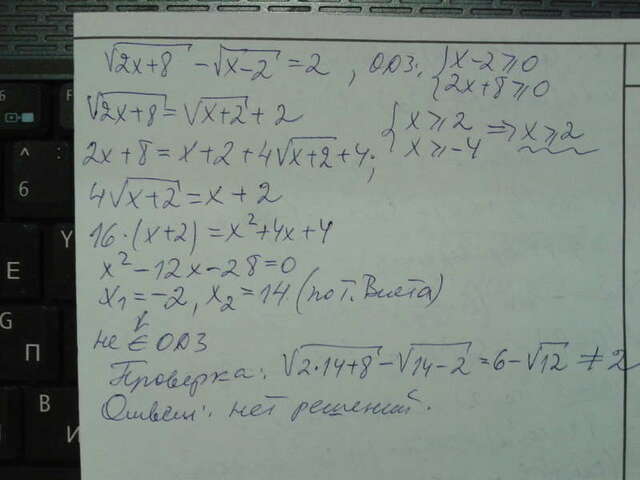 √(2x+8) - √(x-2) = 2, ОДЗ: { x-2 ≥ 0
2x+8 ≥ 0
√(2x+8) = √(x+2) + 2
{ x ≥ 2 => x ≥ 2
x ≥ -4
2x+8 = x+2+4√(x+2)+4;
4√(x+2) = x+2
16·(x+2) = x²+4x+4
x²-12x-28=0
x₁=-2, x₂=14 (по т. Виета)
не ∈ ОДЗ
Проверка: √(2·14+8) - √(14-2) = 6-√12 ≠ 2
Ответ: нет решений.
^
6
6
F
Y
Е
G
П
В
И